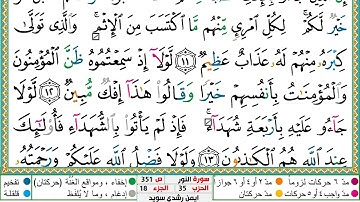 خَيْرٌ لَّكُمْ ۚ لِكُلِّ امْرِئٍ مِّنْهُم مَّا اكْتَسَبَ مِنَ الْإِثْمِ ۚ وَالَّذِي تَوَلَّىٰ
كِبْرَهُ مِنْهُمْ لَهُ عَذَابٌ عَظِيمٌ ١١ لَّوْلَا إِذْ سَمِعْتُمُوهُ ظَنَّ الْمُؤْمِنُونَ
وَالْمُؤْمِنَاتُ بِأَنفُسِهِمْ خَيْرًا وَقَالُوا هَٰذَا إِفْكٌ مُّبِينٌ ١٢ لَّوْلَا
جَاءُو عَلَيْهِ بِأَرْبَعَةِ شُهَدَاءَ ۚ فَإِذْ لَمْ يَأْتُوا بِالشُّهَدَاءِ فَأُولَٰئِكَ
عِندَ اللَّهِ هُمُ الْكَاذِبُونَ ١٣ وَلَوْلَا فَضْلُ اللَّهِ عَلَيْكُمْ وَرَحْمَتُهُ
مدّ ٦ حركات لزوماً مدّ ٢ أو ٤ أو ٦ جوازاً سورة النور ص 351 إخفاء، ومواقع الغنّة (حركتان) تفخيم
مدّ واجب ٤ أو ٥ حركات مدّ حركتان الحزب 35 الجزء 18 إدغام، وما لا يُلفظ قلقلة
أيمن رشدي سويد